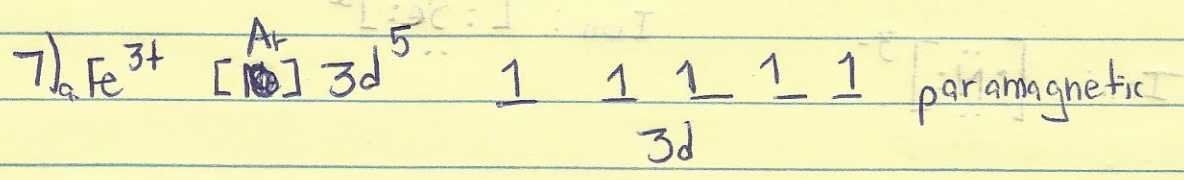 7)a Fe³⁺ [Ar] 3d⁵ 1 1 1 1 1 paramagnetic
3d